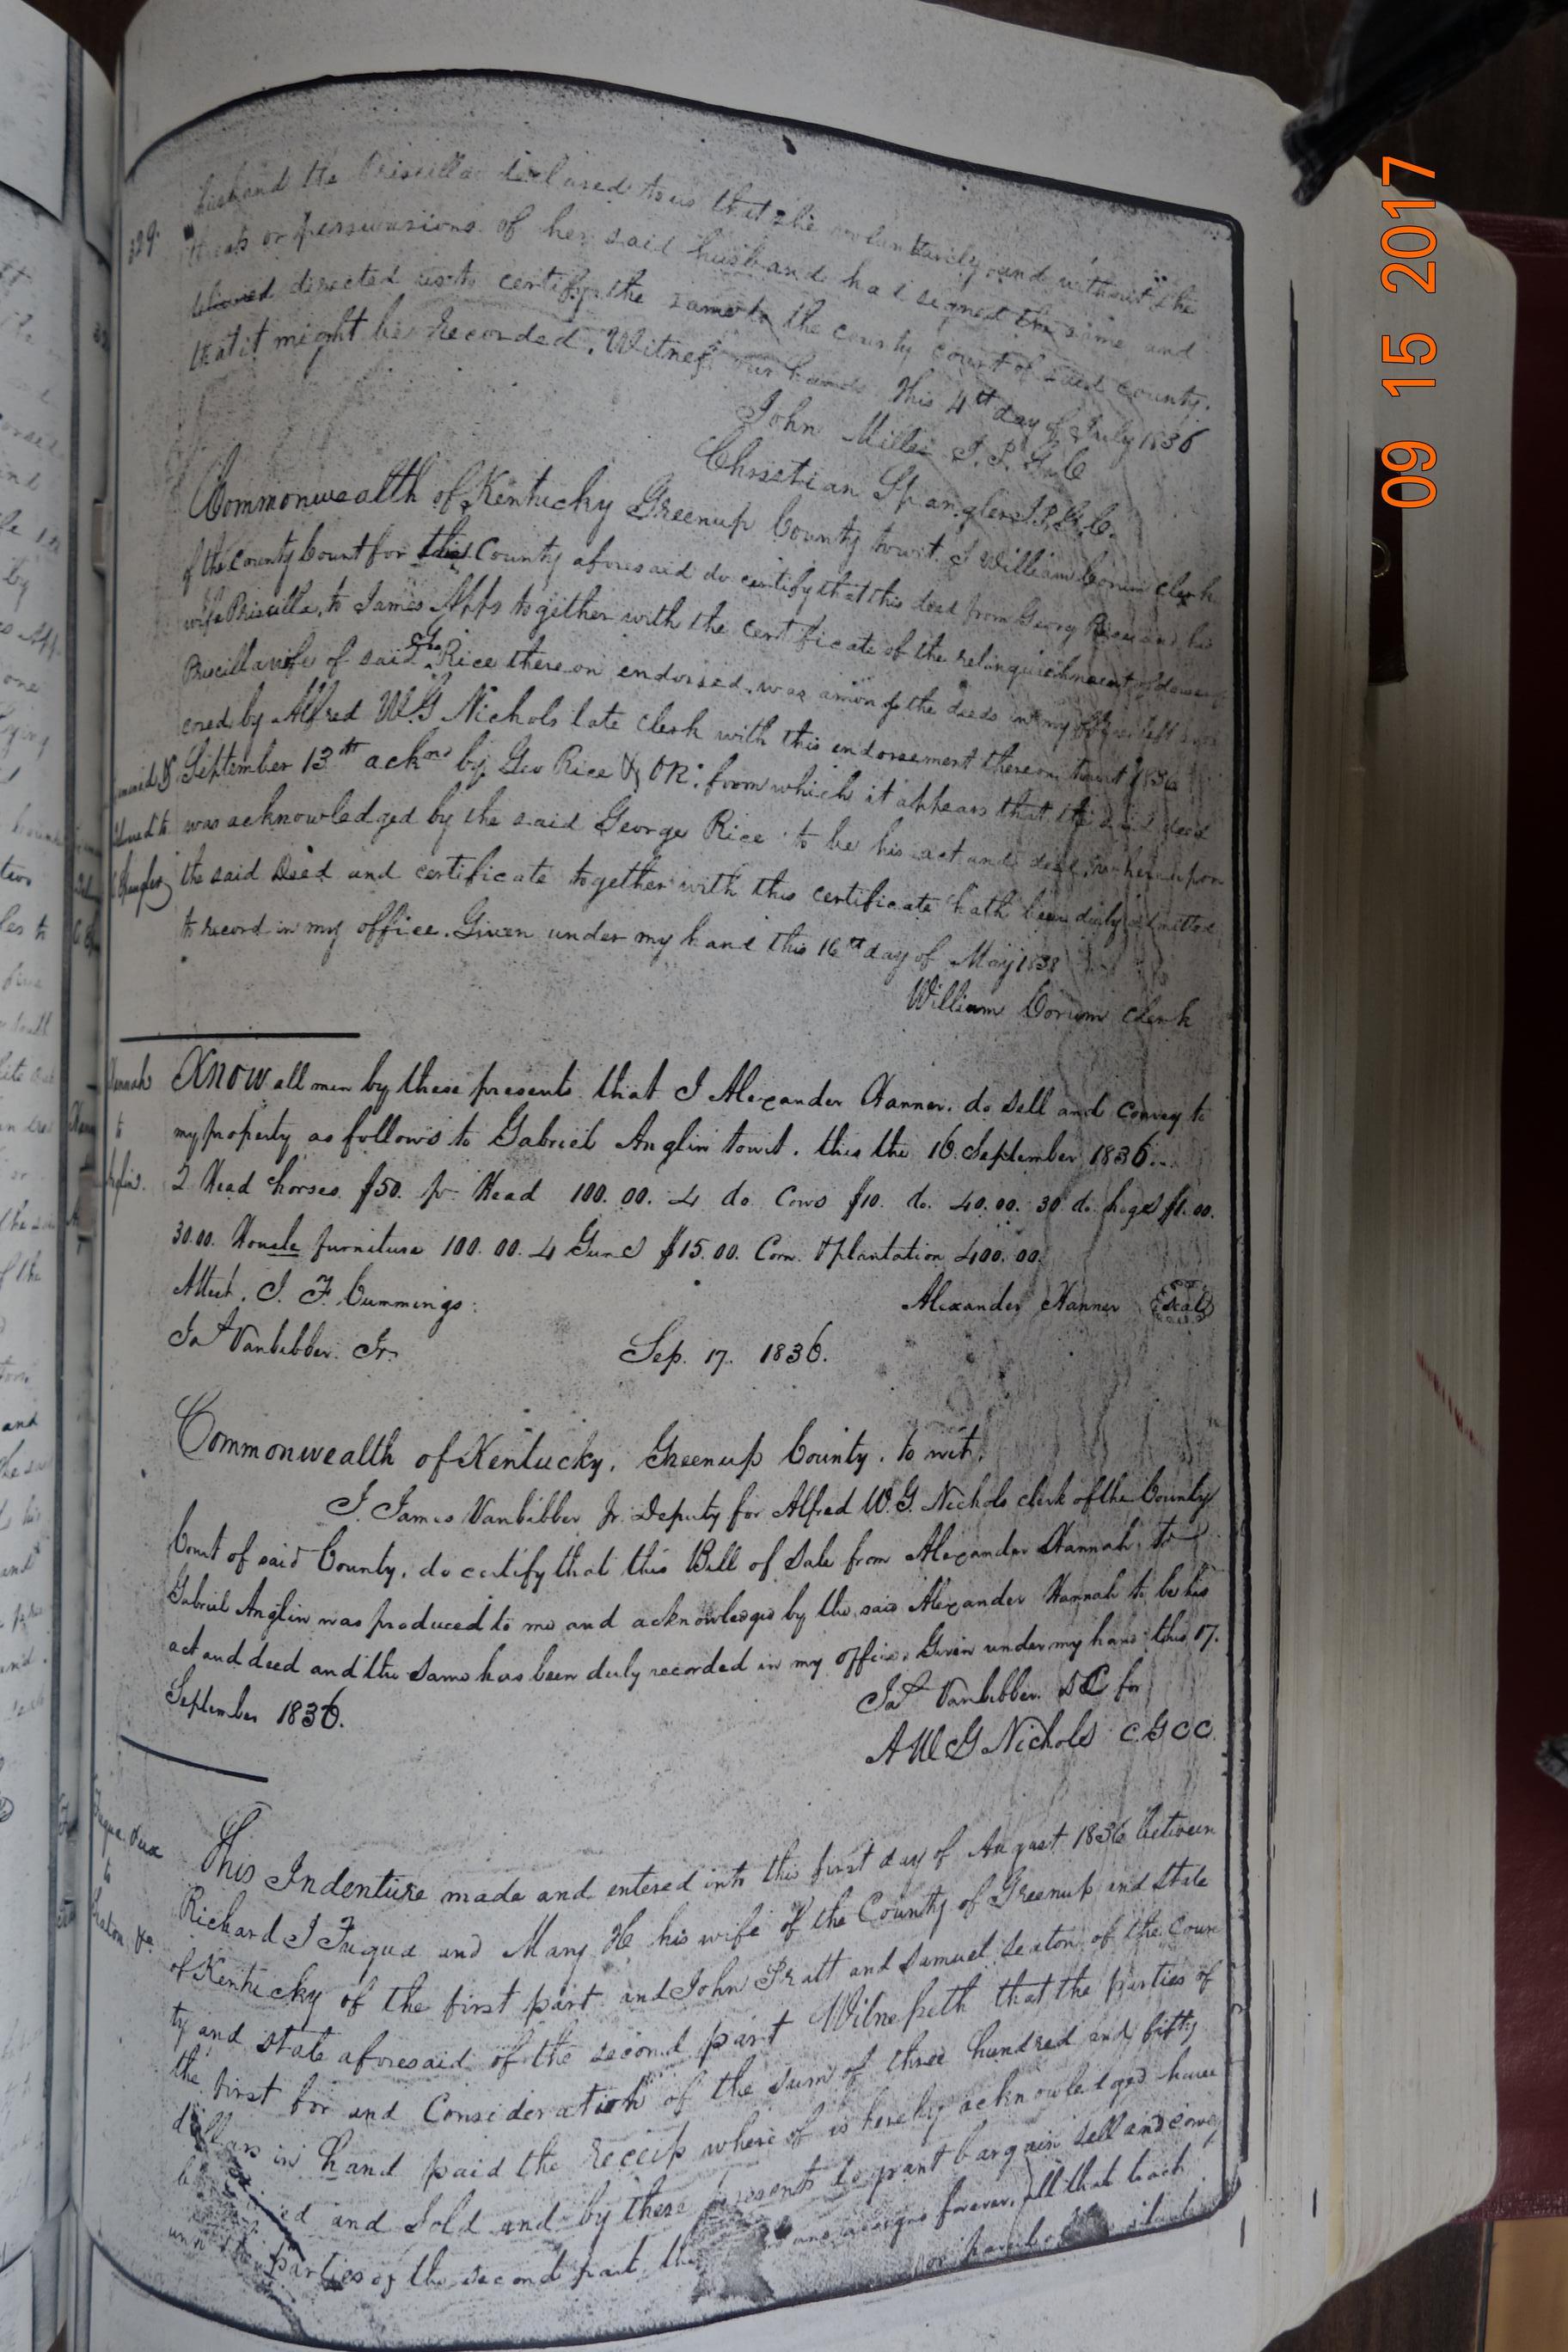 09 15 2017
husband the Priscilla declared to us that she voluntarily and without the
threats or perswasions of her said husband had signed the same and
directed us to certify the same to the county court of said county.
that it might be recorded. Witness our hands this 4th day of July 1836
John Miller J.P.G.C
Christian Spangler J.P.G.C.
Commonwealth of Kentucky Greenup County towit. I William Corum clerk
of the County Court for the County aforesaid do certify that this deed from George Rice and his
wife Priscilla, to James Apps together with the certificate of the relinquishment of dower of
Priscilla wife of said Geo Rice thereon endorsed, was among the deeds in my office left
by Alfred W.G Nichols late clerk with this endorsement thereon, towit 1836
September 13th ackns by Geo Rice & OR. from which it appears that the said deed
was acknowledged by the said George Rice to be his act and deed, whereupon
the said Deed and certificate together with this certificate hath been duly admitted
to record in my office. Given under my hand this 16th day of May 1838
William Corum clerk
Hannah
to
Know all men by these presents that I Alexander Hanner. do sell and convey to
my property as follows to Gabriel Anglin towit. this the 16. September 1836.
2 Head horses $50. pr. Head 100.00. 4 do Cows $10. do. 40.00. 30 do hogs $1.00.
30.00. House furniture 100.00. 4 Guns $15.00. Corn & plantation 400.00.
Attest. J. F. Cummings. Alexander Hanner Seal
Jas Vanbibber. Jr. Sep. 17. 1836.
Commonwealth of Kentucky. Greenup County. to wit.
I. James Vanbibber Jr. Deputy for Alfred W.G. Nichols clerk of the County
Court of said County. do certify that this Bill of Sale from Alexander Hannah to
Gabriel Anglin was produced to me and acknowledged by the said Alexander Hannah to be his
act and deed and the same has been duly recorded in my office. Given under my hand this 17.
September 1836. Jas Vanbibber DC for
A W G Nichols C.G.C.C.
Fuqua & ux
to
Seaton &c.
This Indenture made and entered into this first day of August 1836 between
Richard J Fuqua and Mary H his wife of the County of Greenup and State
of Kentucky of the first part and John Pratt and Samuel Seaton of the Coun
ty and State aforesaid of the second part Witnesseth that the parties of
the first for and Consideration of the sum of three hundred and fifty
dollars in hand paid the receip whereof is hereby acknowledged have
and Sold and by these presents do grant bargain sell and convey
parties of the second part, and assigns forever, all that tract